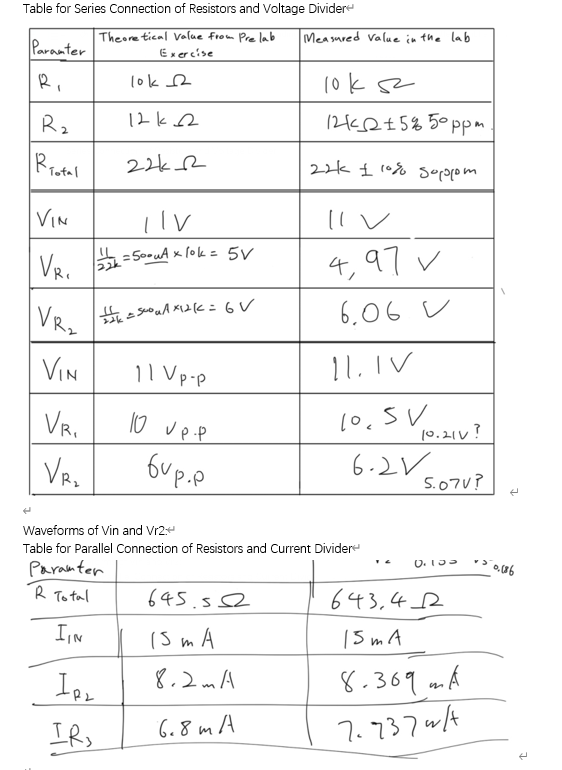 Table for Series Connection of Resistors and Voltage Divider
Paramter Theoretical Value from Prelab Exercise Measured Value in the lab
R1 10k Ω 10k Ω
R2 12k Ω 12kΩ±5% 50ppm
RTotal 22k Ω 22k ± 10% 50ppm
VIN 11V 11 V
VR1 11/22k = 500uA x 10k = 5V 4,97 V
VR2 11/22k = 500uA x12k = 6V 6.06 V
VIN 11 Vp-p 11.1V
VR1 10 Vp.p 10.5V 10.21V?
VR2 6Vp.p 6.2V 5.07V?
Waveforms of Vin and Vr2:
Table for Parallel Connection of Resistors and Current Divider
Paramter
R Total 645.5Ω 643.4Ω
IIN 15 mA 15 mA
IR2 8.2mA 8.369 mA
IR3 6.8 mA 7.737 mA